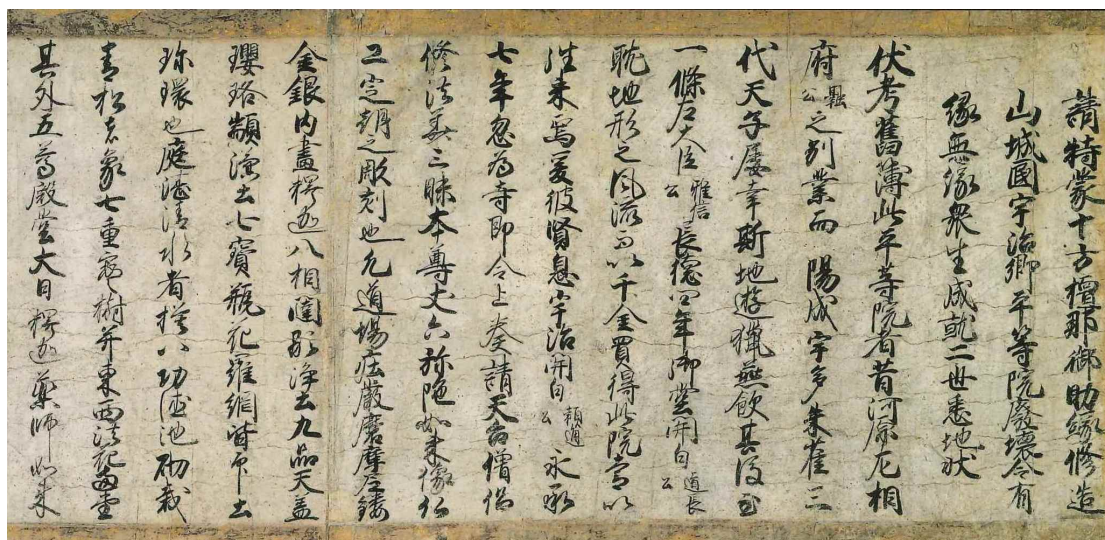 請特蒙十方檀那御助縁修造
山城國宇治郷平等院廢壊令有
縁無縁衆生成就二世悉地状
伏考舊簿此平等院者昔河原左相
府融公之別業而陽成宇多朱雀三
代天子屡幸斯地遊獵燕飲其後至
一條左大臣雅信公長徳四年御堂関白道長公
耽地形之風流而以千金買得此院常以
往来焉爰彼賢息宇治関白頼通公永承
七年忽為寺即令上奏請天台僧侶
修法華三昧本尊丈六弥陁如来像仏
工定朝之彫刻也凡道場荘厳磨摩尼鏤
金銀内畫釋迦八相圖彩浄土九品天盖
瓔珞顯浄土七寶瓶花羅網皆
珎環也庭湛清水者擬八功徳池砌栽
青松者象七重寳樹并東西法花両堂
其外五尊殿堂大日釋迦薬師如来